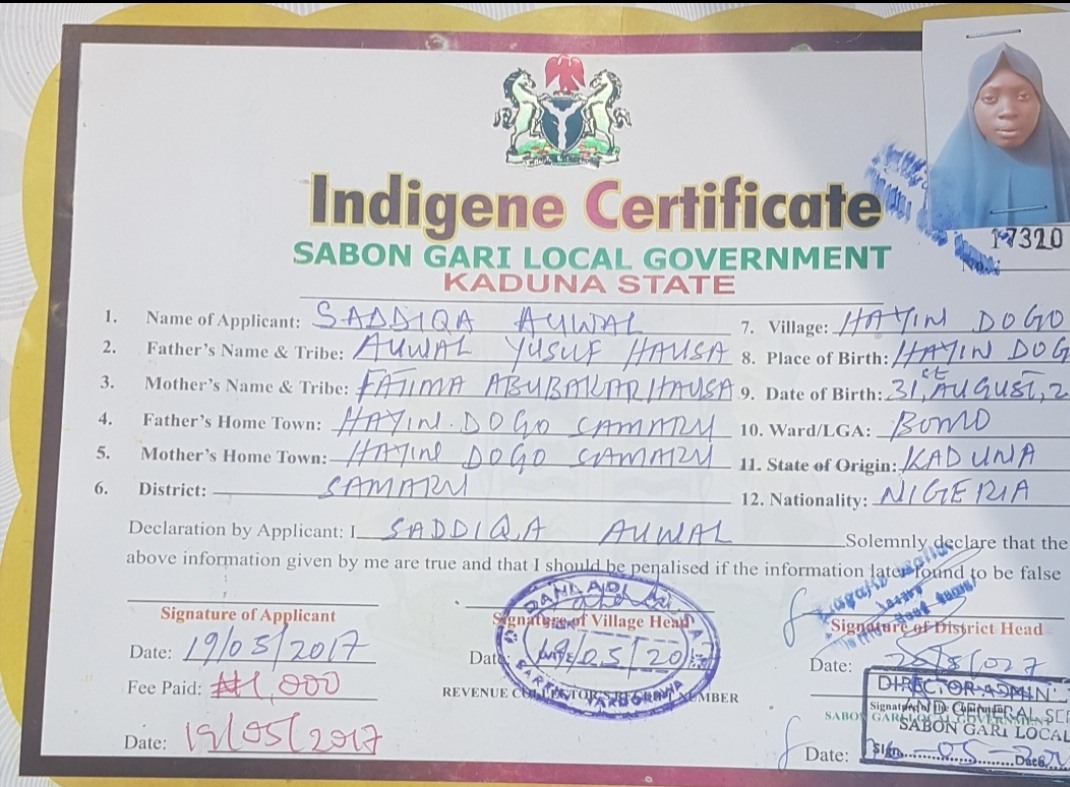 Indigene Certificate
SABON GARI LOCAL GOVERNMENT
KADUNA STATE
17320
No.:
1. Name of Applicant: SADDIQA AUWAL
2. Father's Name & Tribe: AUWAL YUSUF HAUSA
3. Mother's Name & Tribe: FATIMA ABUBAKAR HAUSA
4. Father's Home Town: HAYIN DOGO SAMARU
5. Mother's Home Town: HAYIN DOGO SAMARU
6. District: SAMARU
7. Village: HAYIN DOGO
8. Place of Birth: HAYIN DOG
9. Date of Birth: 31st, AUGUST, 2
10. Ward/LGA: BOMO
11. State of Origin: KADUNA
12. Nationality: NIGERIA
Declaration by Applicant: I SADDIQA AUWAL Solemnly declare that the
above information given by me are true and that I should be penalised if the information later found to be false
Signature of Applicant
Date: 19/05/2017
Fee Paid: ₦1,000
Date: 19/05/2017
DANLADI
Signature of Village Head
Date: 19/05/20
REVENUE NUMBER
Signature of District Head
Date:
DIRECTOR ADMIN
AND GENERAL SE
SABON GARI LOCAL
Sign Date
SABON GARI LOCAL GOVERNMENT
Date: